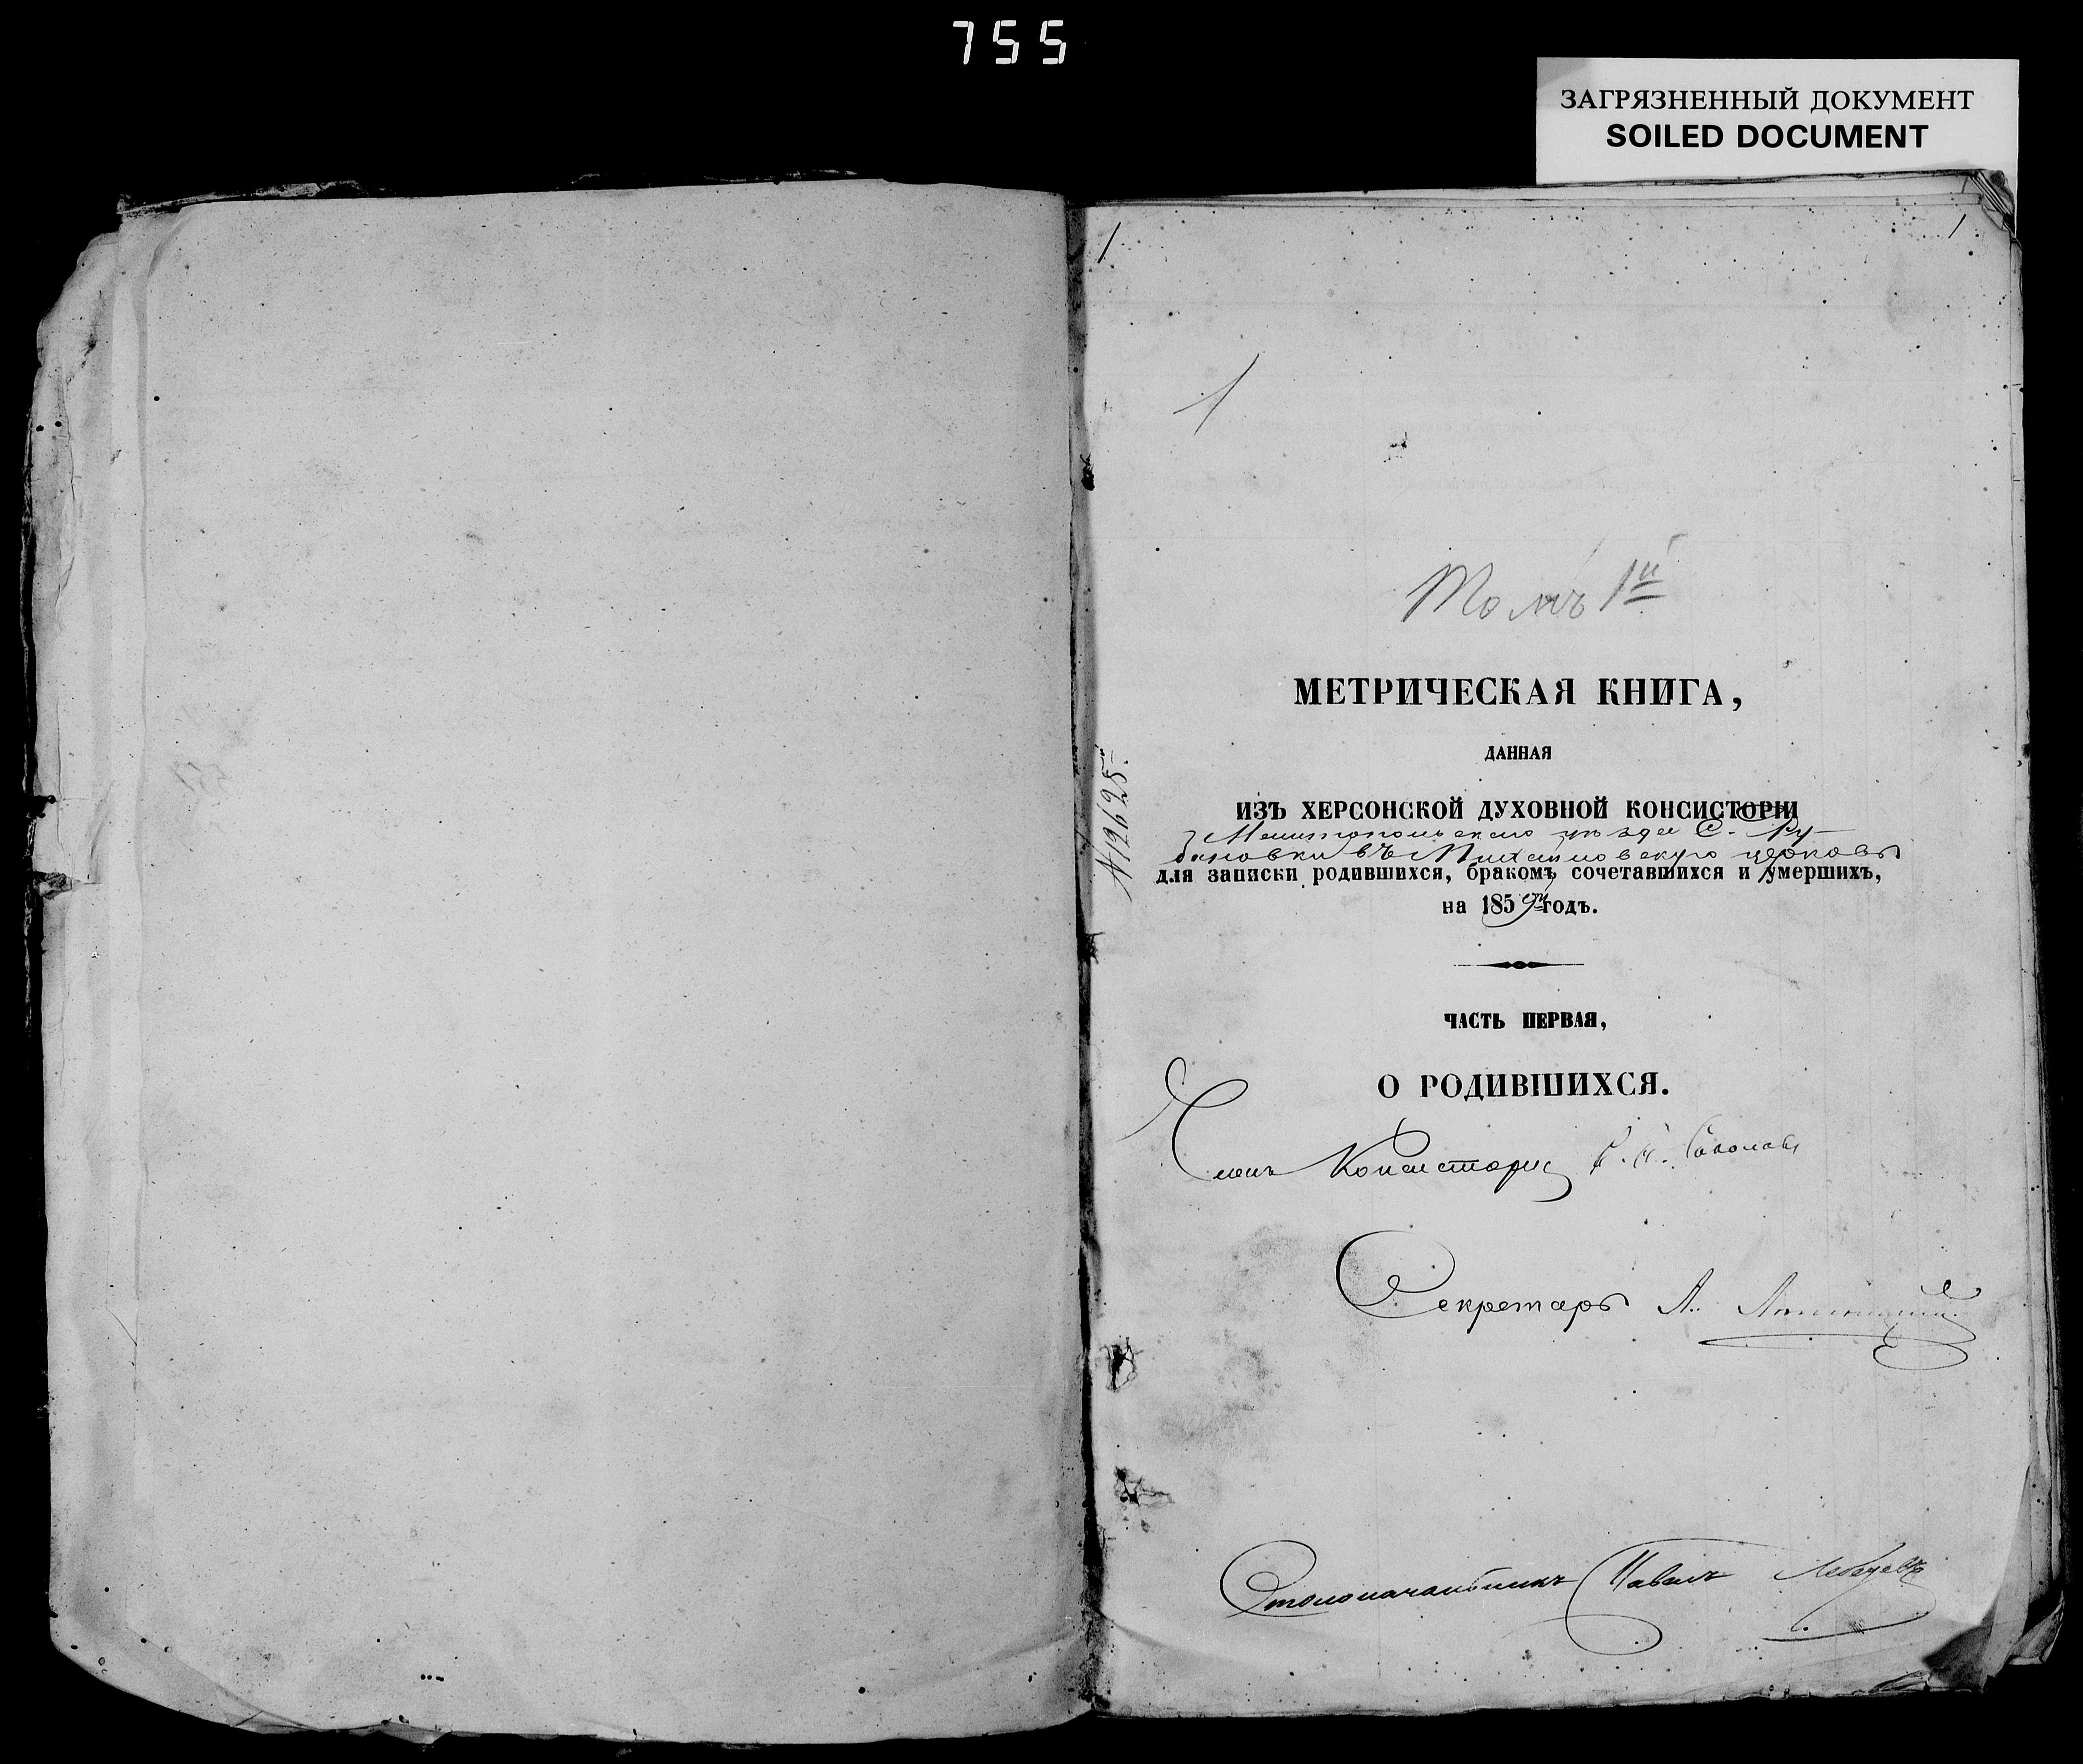 755
ЗАГРЯЗНЕННЫЙ ДОКУМЕНТ
SOILED DOCUMENT
1
1
1
Томъ 1й
МЕТРИЧЕСКАЯ КНИГА,
ДАННАЯ
ИЗЪ ХЕРСОНСКОЙ ДУХОВНОЙ КОНСИСТОРІИ
Мелитопольскаго уѣзда С. Ру-
бановки въ Михайловскую церковь
для записки родившихся, бракомъ сочетавшихся и умершихъ,
на 1859й годъ.
№ 12625.
ЧАСТЬ ПЕРВАЯ,
О РОДИВШИХСЯ.
Членъ Консисторіи Соколовъ
Секретарь А.
Столоначальникъ Павелъ Лебедевъ